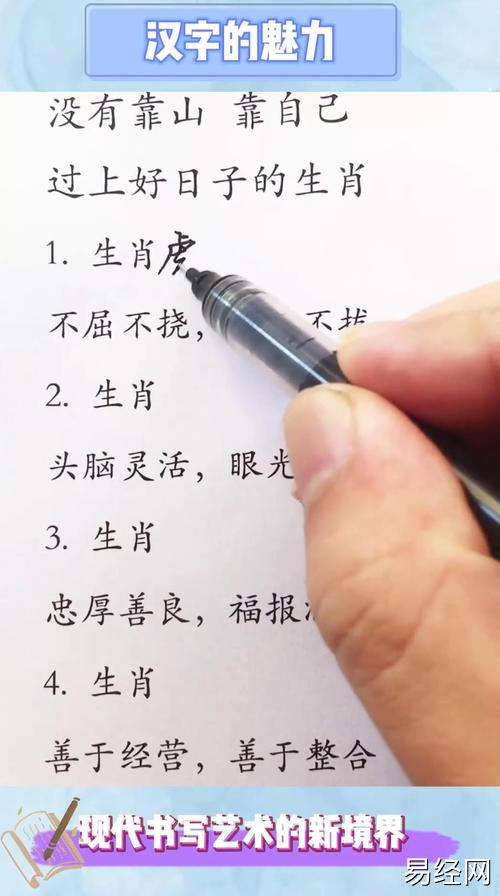 汉字的魅力
没有靠山 靠自己
过上好日子的生肖
1. 生肖虎
不屈不挠, 不拔
2. 生肖
头脑灵活, 眼光
3. 生肖
忠厚善良, 福报
4. 生肖
善于经营, 善于整合
现代书写艺术的新境界
易经网